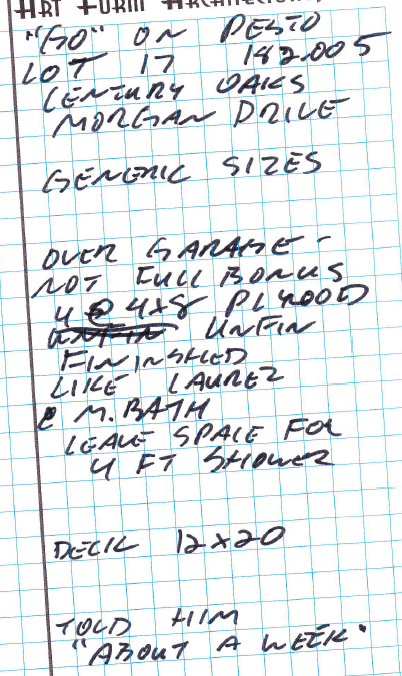 ART FORM ARCHITECTURE
"GO" ON PESTO
LOT 17 182.005
CENTURY OAKS
MORGAN DRIVE
GENERIC SIZES
OVER GARAGE -
NOT FULL BONUS
4 @ 4x8 PLYOOD
UNFIN UNFIN
FININSHED
LIKE LAUREL
@ M. BATH
LEAVE SPACE FOR
4 FT SHOWER
DECK 12x20
TOLD HIM
"ABOUT A WEEK"